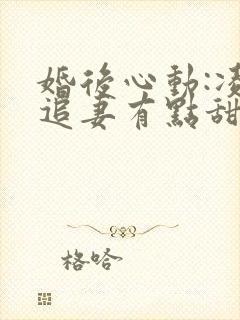 婚後心動:凌
追妻有點甜
格哈